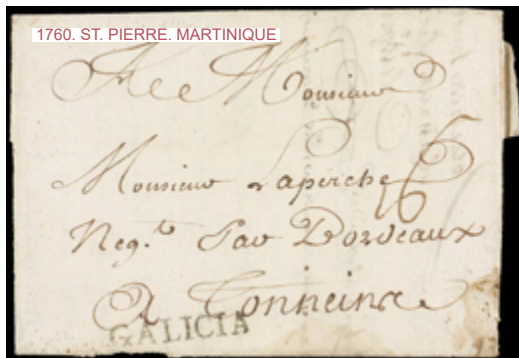 1760. ST. PIERRE. MARTINIQUE
A Monsieur
Monsieur Laperche
Neg.t Par Bordeaux
16
A Tonneins
GALICIA